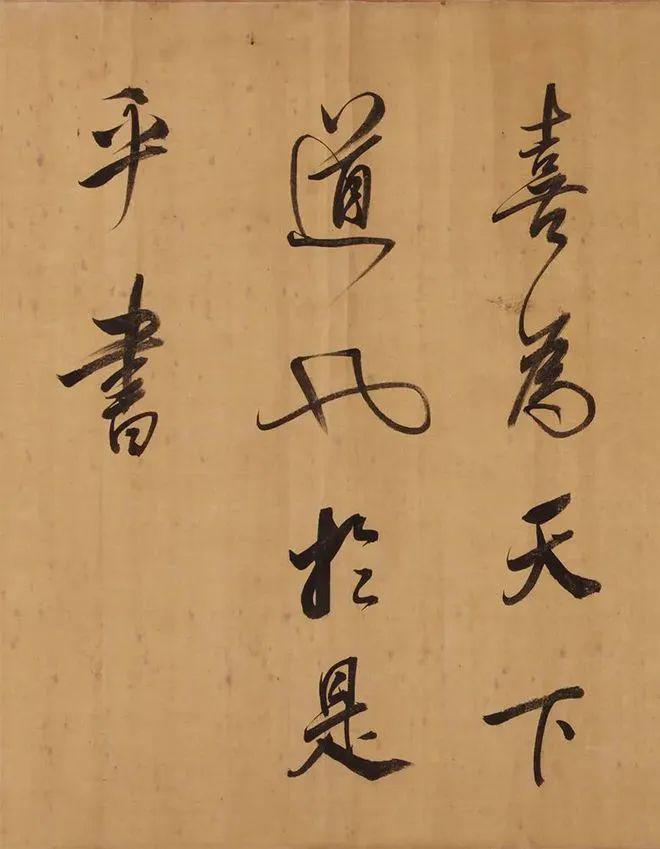 喜為天下
道也於是
乎書